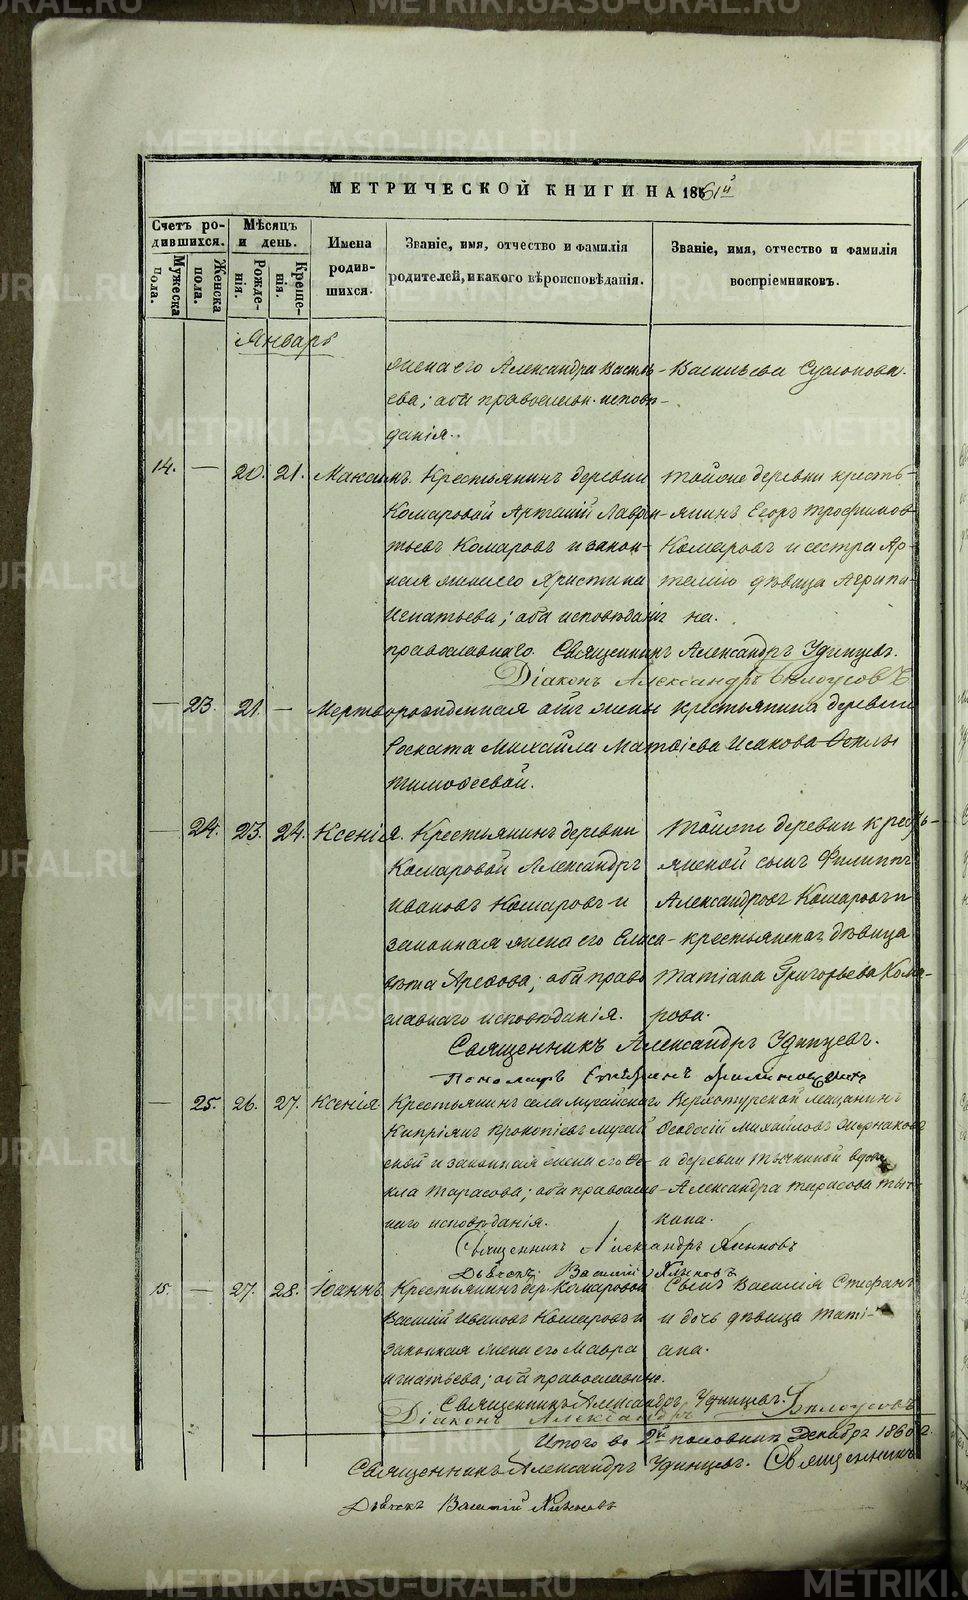 METRIKI.GASO-URAL.RU
МЕТРИЧЕСКОЙ КНИГИ НА 1861й
Счетъ ро-
дившихся.
Мужеска
пола.
Женска
пола.
Мѣсяцъ
и день.
Рожде-
нія.
Креще-
нія.
Имена
родив-
шихся.
Званіе, имя, отчество и фамилія
родителей, и какого вѣроисповѣданія.
Званіе, имя, отчество и фамилія
воспріемниковъ.
Январь
жена его Александра Василь-
ева; оба православн. исповѣ-
данія.
Васильева
14. — 20. 21. Максимъ.
Крестьянинъ деревни
Комаровой Артемій Лаврен-
тьевъ Комаровъ и закон-
ная жена его Христина
Игнатьева; оба исповѣданія
православнаго.
Тойже деревни кресть-
янинъ Егоръ Трофимовъ
Комаровъ и сестра Ар-
темію дѣвица Агрипи-
на.
Священникъ Александръ Удинцевъ.
Діаконъ Александръ Бѣлоусовъ
— 23. 21. — Мертворожденная отъ жены крестьянина деревни
Роската Михайла Матѳіева Исакова
Тимоѳеевой.
— 24. 23. 24. Ксенія.
Крестьянинъ деревни
Комаровой Александръ
Ивановъ Комаровъ и
законная жена его Елиса-
вета; оба право
славнаго исповѣданія.
Тойже деревни кресть-
янской сынъ Филиппъ
Александровъ Комаровъ и
крестьянская дѣвица
Татіана Григорьева Кома-
рова.
Священникъ Александръ Удинцевъ.
Пономарь Стефанъ
— 25. 26. 27. Ксенія
Крестьянинъ села Мугайскаго
Кипріянъ Прокопіевъ Мугай
ской и законная жена его Ѳе-
кла Тарасова; оба правосла-
наго исповѣданія.
Верхотурской мещанинъ
Ѳеодосій Михайловъ
и деревни Тычкиной вдова
Александра Тарасова Тыч-
кина.
Священникъ Александръ
Дьячекъ Василій
15. — 27. 28. Іоаннъ
Крестьянинъ дер. Комаровой
Василій Ивановъ Комаровъ и
законная жена его Мавра
Игнатьева; оба православные.
Сынъ Василія Стефанъ
и дочь дѣвица Тати-
ана.
Священникъ Александръ Удинцевъ.
Діаконъ Александръ Бѣлоусовъ
Итого во 2й половинѣ Декабря 1860 г.
Священникъ Александръ Удинцевъ. Священникъ
Дьячекъ Василій